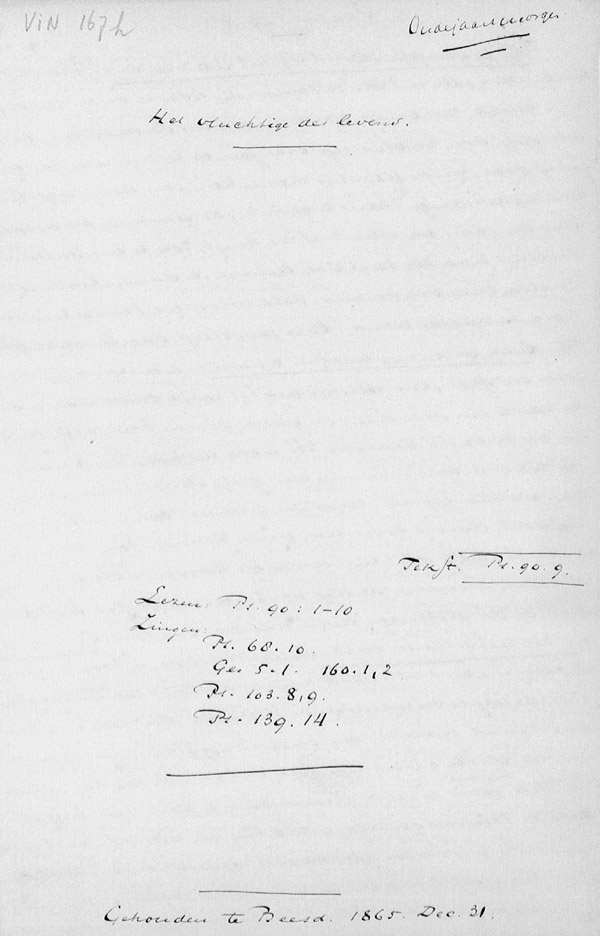 VIN 167h
Oudejaarsmorgen
Het vluchtige des levens.
Tekst. Ps. 90. 9.
Lezen: Ps. 90 : 1-10
Zingen:
Ps. 68. 10.
Gez 5.1. 160.1,2
Ps. 103. 8,9.
Ps. 139. 14.
Gehouden te Beesd. 1865. Dec. 31.